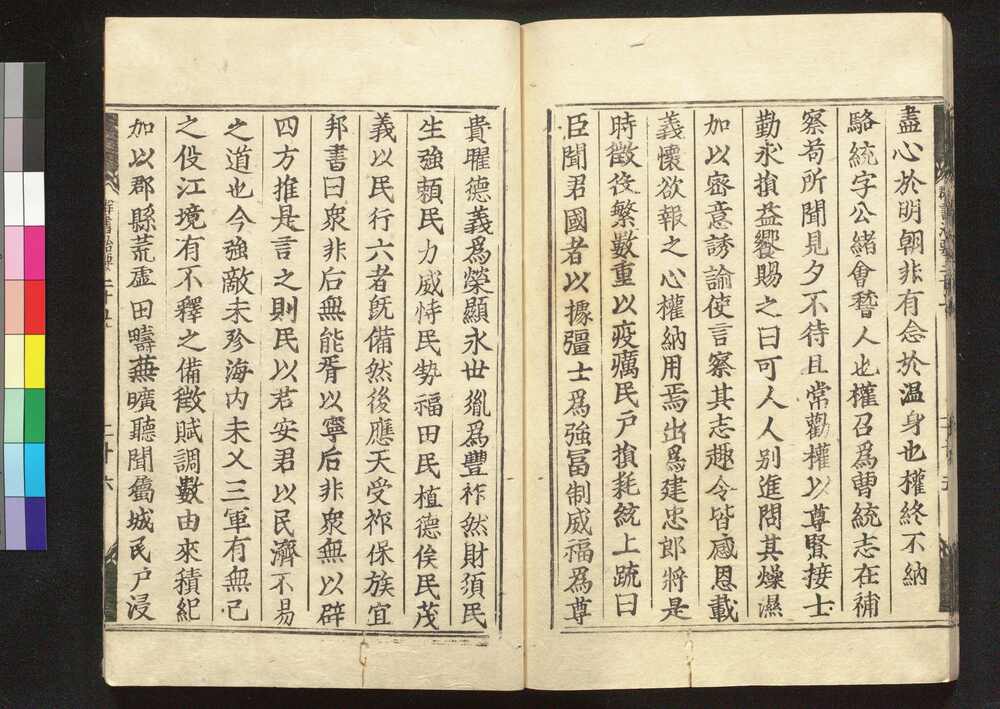 盡心於明朝非有念於温身也權終不納
駱統字公緒會稽人也權召爲曹統志在補
察苟所聞見夕不待旦常勸權以尊賢接士
勤求損益饗賜之日可人人別進問其燥濕
加以密意誘諭使言察其志趣令皆感恩載
義懷欲報之心權納用焉出爲建忠郎將是
時徵役繁數重以疫癘民戸損耗統上疏曰
臣聞君國者以據彊土爲強冨制威福爲尊
貴曜德義爲榮顯永世胤爲豐祚然財須民
生強賴民力威恃民勢福田民植德俟民茂
義以民行六者既備然後應天受祚保族宜
邦書曰衆非后無能胥以寧后非衆無以辟
四方推是言之則民以君安君以民濟不易
之道也今強敵未殄海内未乂三軍有無已
之役江境有不釋之備徵賦調數由來積紀
加以郡縣荒虚田疇蕪曠聽聞屬城民戸浸
群書治要二十
二十六